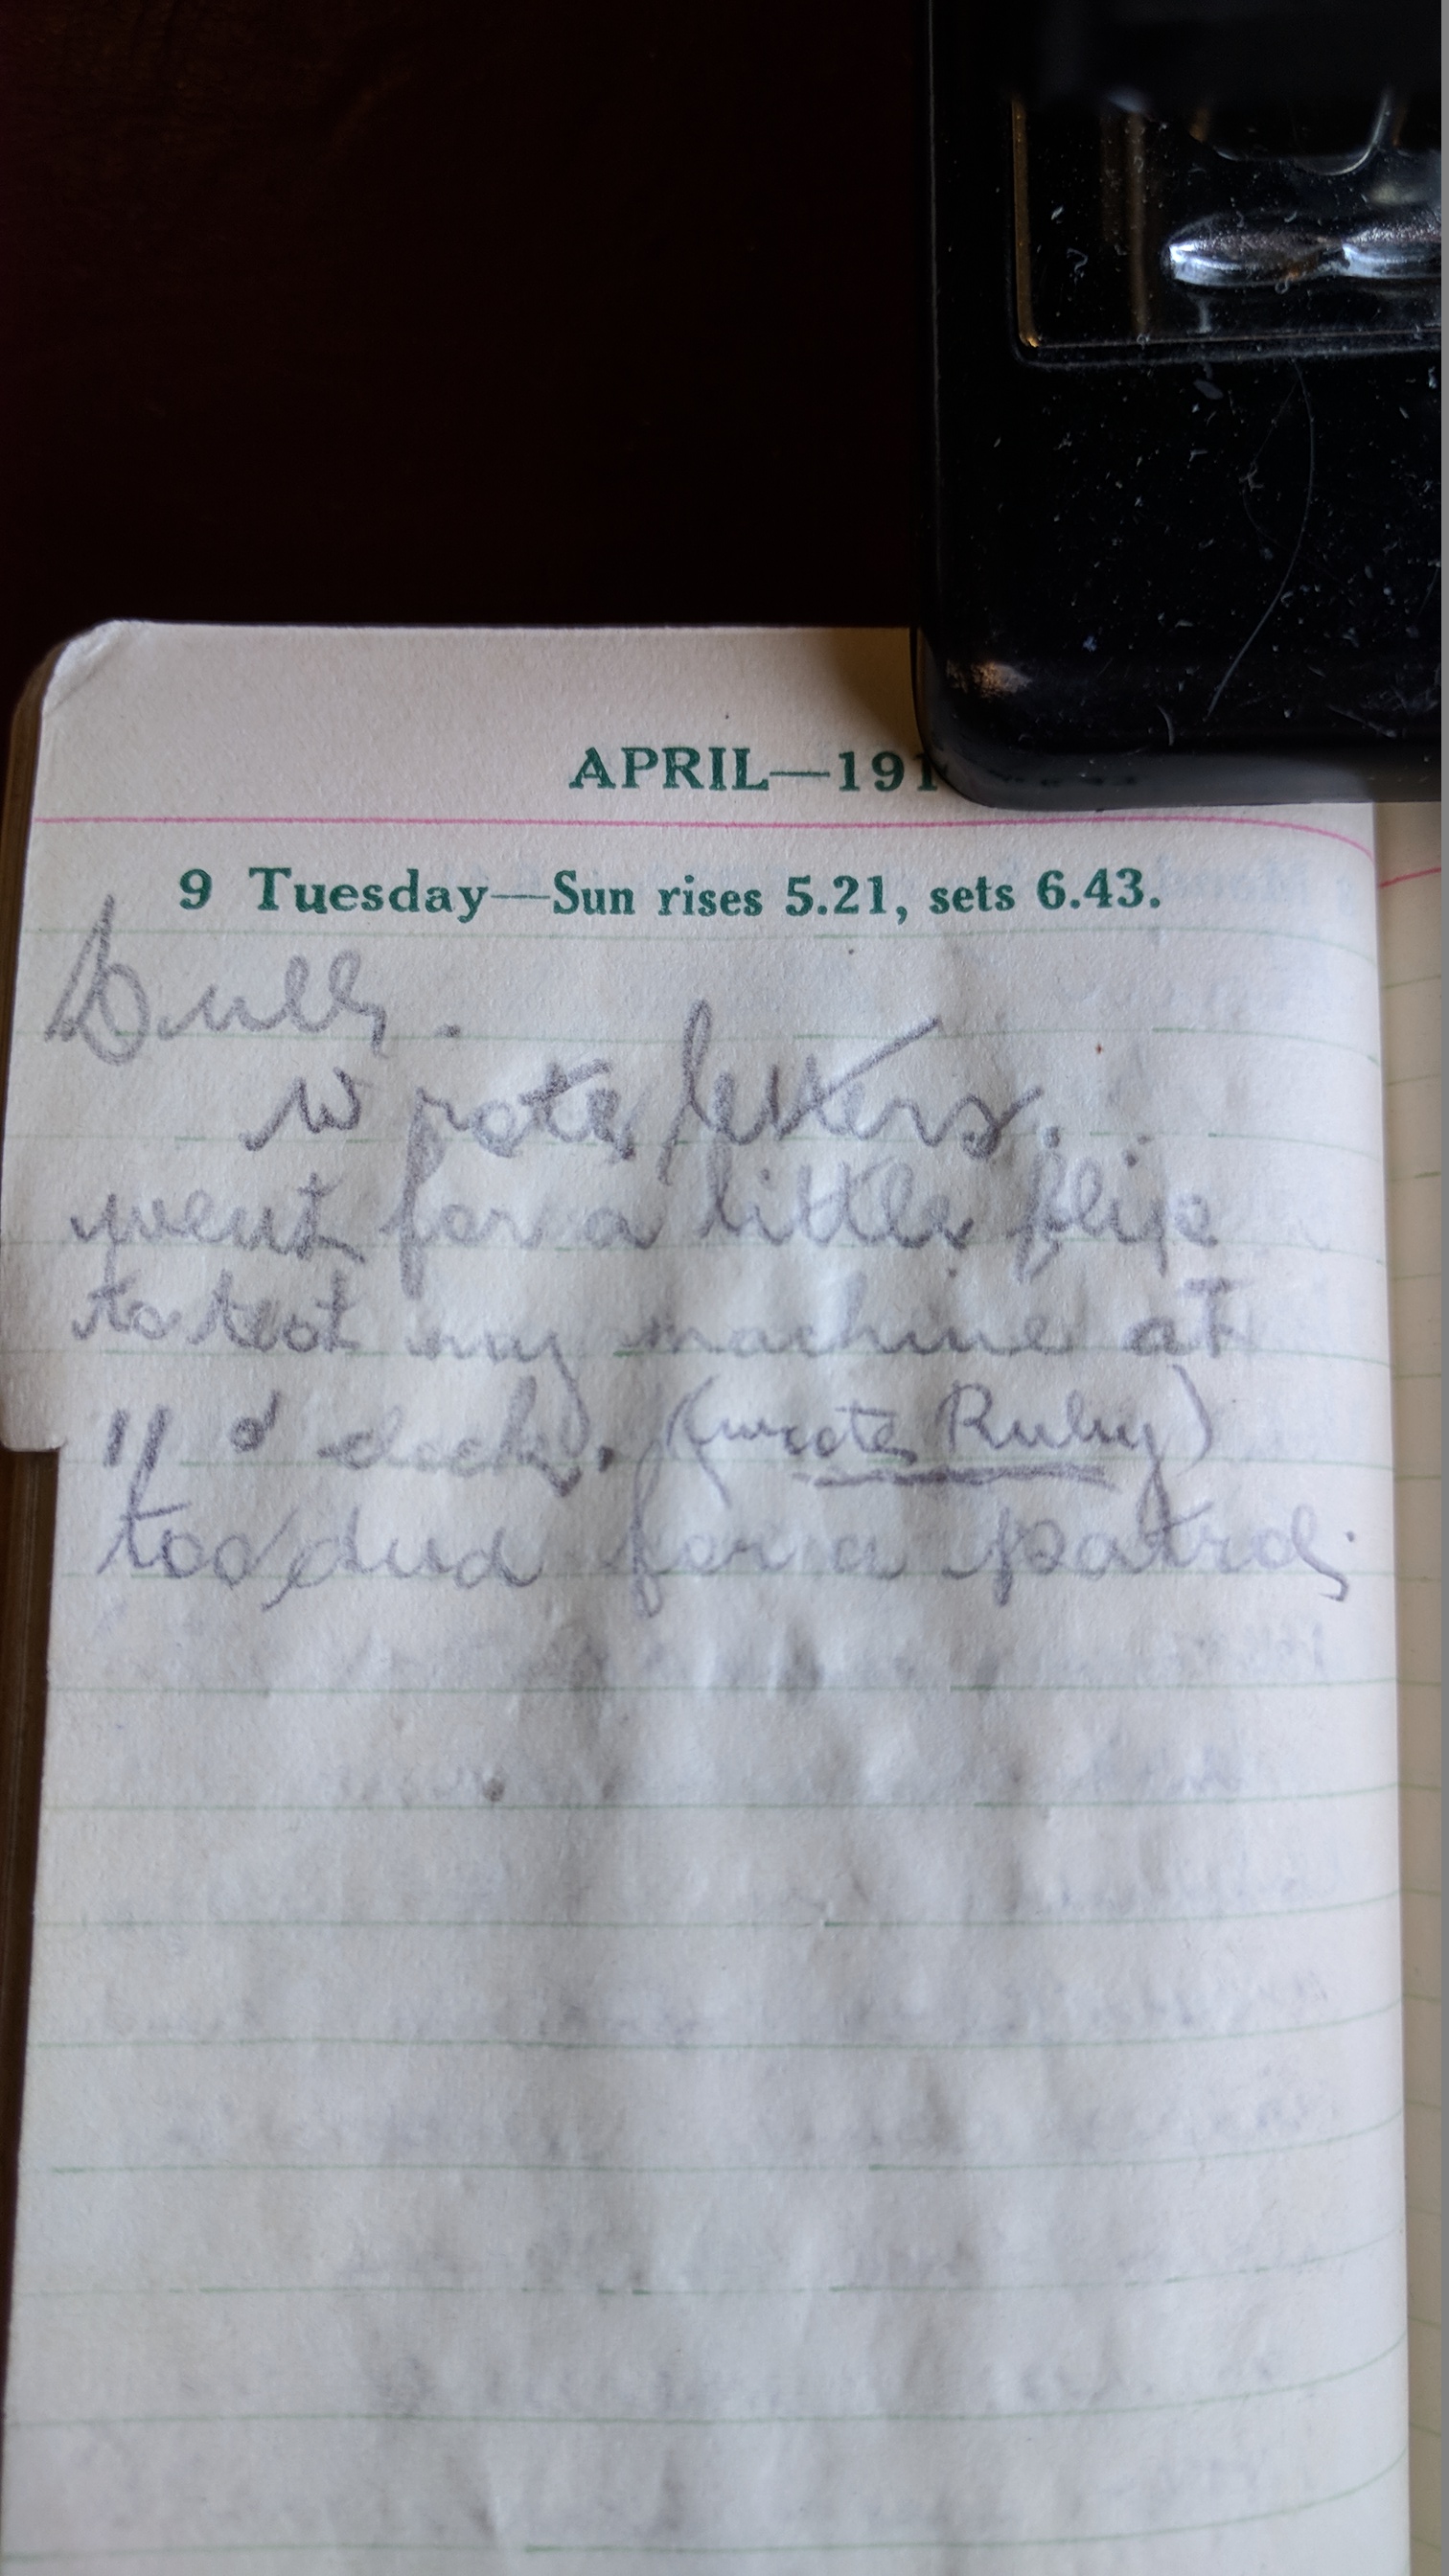 APRIL—191
9 Tuesday—Sun rises 5.21, sets 6.43.
Dull.
Wrote letters.
went for a little flip
to test my machine at
11 o'clock. (wrote Ruby)
too dud for a patrol.